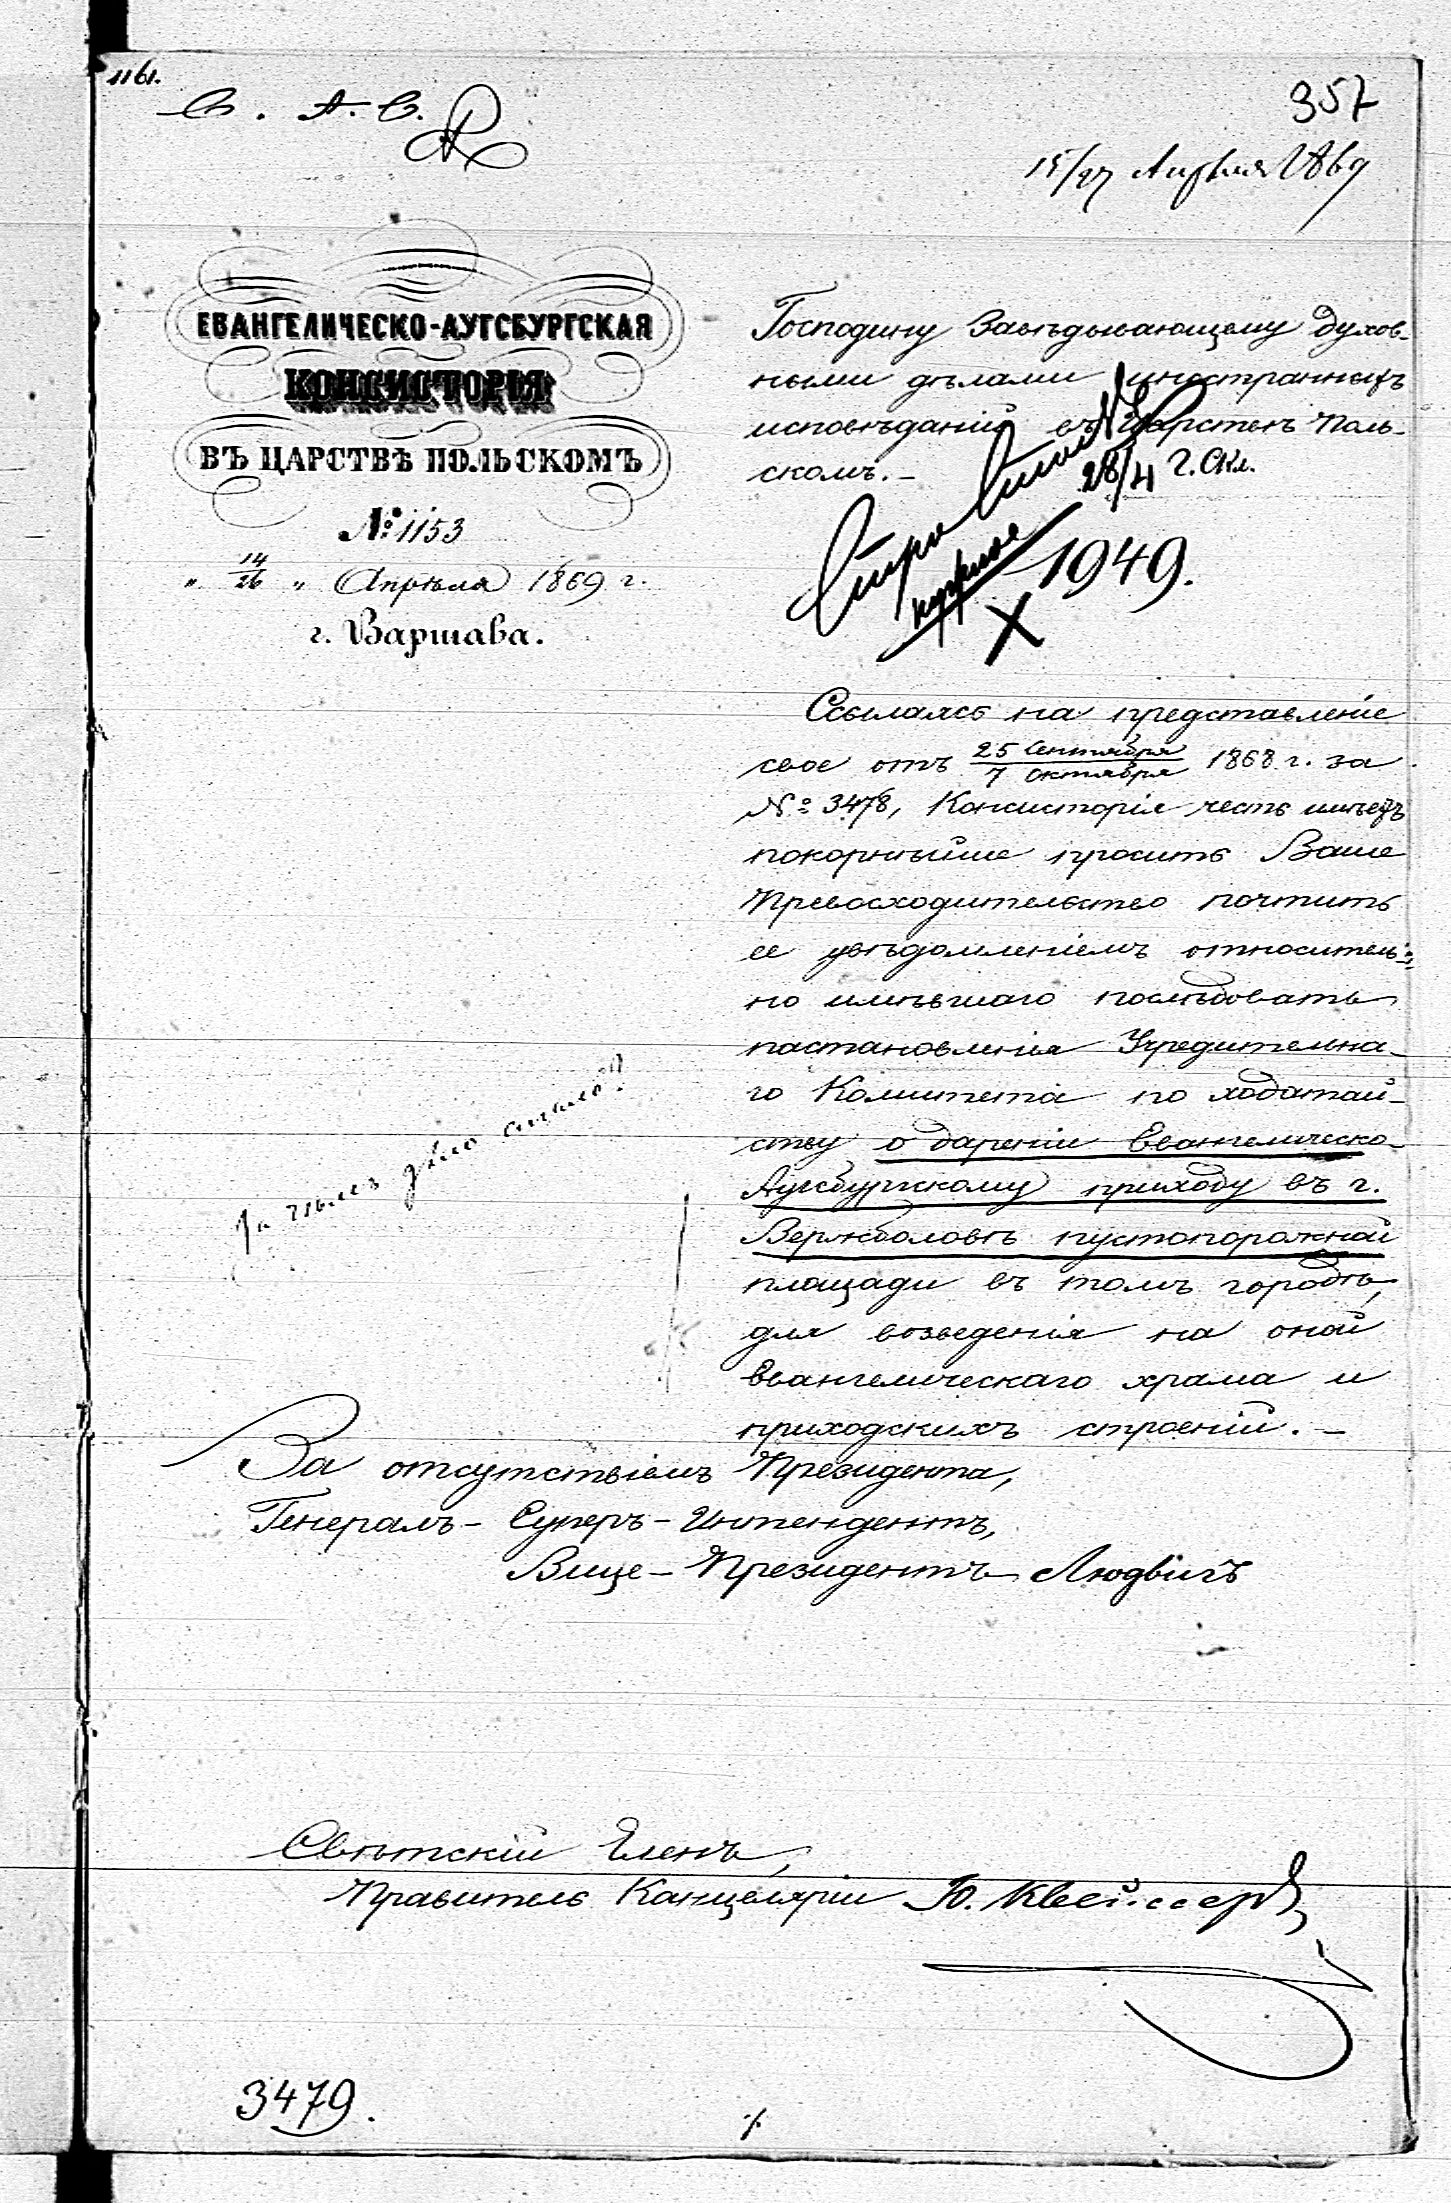 1161.
357
15/27 Апреля 1869
ЕВАНГЕЛИЧЕСКО-АУГСБУРГСКАЯ
КОНСИСТОРІЯ
ВЪ ЦАРСТВѢ ПОЛЬСКОМЪ
№ 1153
" 14/26 " Апрѣля 1869 г.
г. Варшава.
Господину Завѣдывающему духов-
ными дѣлами иностранныхъ
исповѣданій въ Царствѣ Поль-
скомъ.-
28/4
1949.
Ссылаясь на представленіе
свое отъ 25 Сентября/7 Октября 1868 г. за
№ 3478, Консисторія честь имѣетъ
покорнѣйше просить Ваше
Превосходительство почтить
ее увѣдомленіемъ относитель-
но имѣвшаго послѣдовать
постановленія Учредительна-
го Комитета по ходатай-
ству о дареніи Евангелическо-
Аугсбургскому приходу въ г.
Вержболовѣ пустопорожней
площади въ томъ городѣ,
для возведенія на оной
Евангелическаго храма и
приходскихъ строеній.-
За отсутствіемъ Президента,
Генералъ-Суперъ-Интендентъ,
Вице-Президентъ Людвигъ
Свѣтскій Членъ,
Правитель Канцеляріи Ю.
3479.